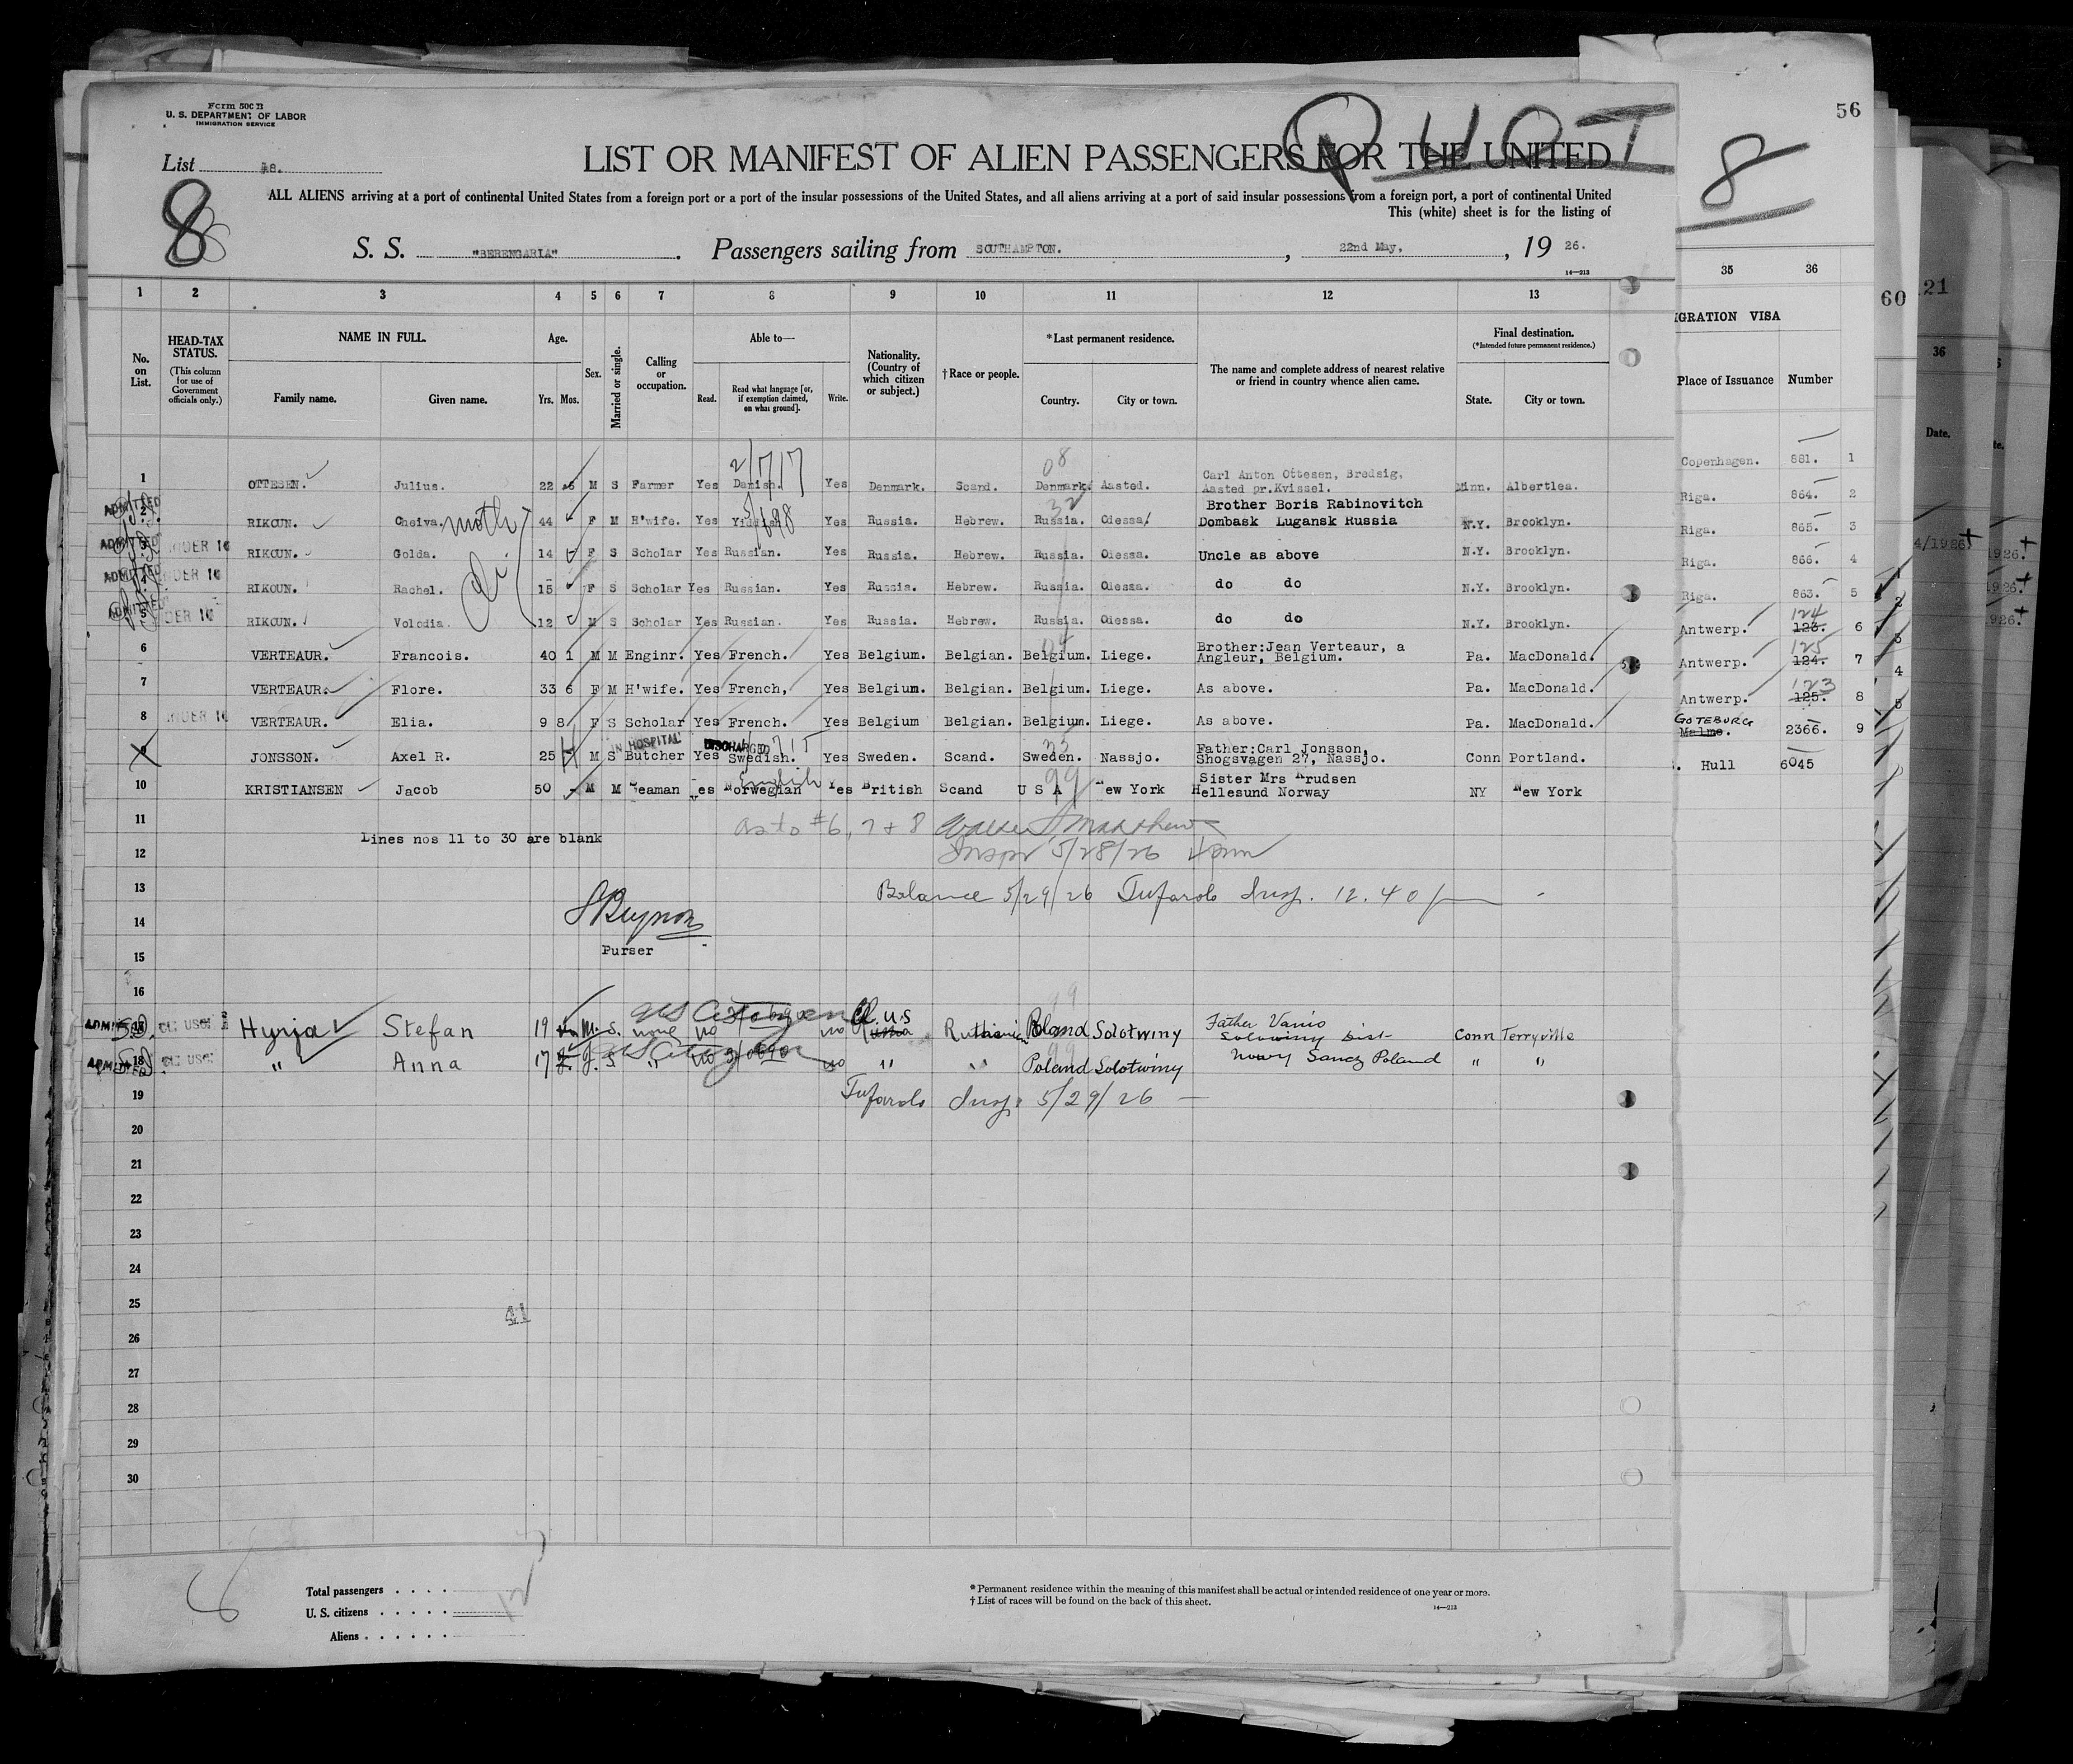 Form 500 B
U. S. DEPARTMENT OF LABOR
IMMIGRATION SERVICE
56
List 48.
LIST OR MANIFEST OF ALIEN PASSENGERS FOR THE UNITED
8
8
ALL ALIENS arriving at a port of continental United States from a foreign port or a port of the insular possessions of the United States, and all aliens arriving at a port of said insular possessions from a foreign port, a port of continental United
This (white) sheet is for the listing of
S. S. "BERENGARIA". Passengers sailing from SOUTHAMPTON. , 22nd May. , 19 26.
14—213
1 2 3 4 5 6 7 8 9 10 11 12 13 35 36
60 121
No. on List.
HEAD-TAX STATUS.
(This column for use of Government officials only.)
NAME IN FULL.
Family name. Given name.
Age.
Yrs. Mos.
Sex.
Married or single.
Calling or occupation.
Able to—
Read. Read what language [or, if exemption claimed, on what ground]. Write.
Nationality. (Country of which citizen or subject.)
† Race or people.
* Last permanent residence.
Country. City or town.
The name and complete address of nearest relative or friend in country whence alien came.
Final destination.
(* Intended future permanent residence.)
State. City or town.
IGRATION VISA
Place of Issuance Number
36
Date.
1 OTTESEN. Julius. 22 M S Farmer Yes Danish. Yes Denmark. Scand. Denmark. Aasted. Carl Anton Ottesen, Bredsig, Aasted pr.Kvissel. Minn. Albertlea.
ADMITTED 2 RIKOUN. Cheiva. moth 44 F M H'wife. Yes Yiddish Yes Russia. Hebrew. Russia. Odessa. Brother Boris Rabinovitch Dombask Lugansk Russia N.Y. Brooklyn.
ADMITTED 3 UNDER 16 RIKOUN. Golda. 14 F S Scholar Yes Russian. Yes Russia. Hebrew. Russia. Odessa. Uncle as above N.Y. Brooklyn.
ADMITTED 4 UNDER 16 RIKOUN. Rachel. 15 F S Scholar Yes Russian. Yes Russia. Hebrew. Russia. Odessa. do do N.Y. Brooklyn.
ADMITTED 5 UNDER 16 RIKOUN. Volodia. 12 M S Scholar Yes Russian. Yes Russia. Hebrew. Russia. Odessa. do do N.Y. Brooklyn.
6 VERTEAUR. Francois. 40 1 M M Enginr. Yes French. Yes Belgium. Belgian. Belgium. Liege. Brother:Jean Verteaur, a Angleur, Belgium. Pa. MacDonald.
7 VERTEAUR. Flore. 33 6 F M H'wife. Yes French, Yes Belgium. Belgian. Belgium. Liege. As above. Pa. MacDonald.
8 UNDER 16 VERTEAUR. Elia. 9 8 F S Scholar Yes French. Yes Belgium Belgian. Belgium. Liege. As above. Pa. MacDonald.
IN HOSPITAL DISCHARGED
9 JONSSON. Axel R. 25 M S Butcher Yes Swedish. Yes Sweden. Scand. Sweden. Nassjo. Father:Carl Jonsson, Shogsvagen 27, Nassjo. Conn Portland.
English
10 KRISTIANSEN Jacob 50 - M M Seaman Yes Norwegian Yes British Scand U S A New York Sister Mrs Knudsen Hellesund Norway NY New York
Copenhagen. 881. 1
Riga. 864. 2
Riga. 865. 3
Riga. 866. 4
Riga. 863. 5
Antwerp. 123. 124 6
Antwerp. 124. 125 7
Antwerp. 125. 123 8
GOTEBURG Malmo. 2366. 9
Hull 6045
11 as to #6, 7 + 8 Matthews
Lines nos 11 to 30 are blank
12 Inspr 5/28/26 4 pm
13 Balance 5/29/26 Tufarolo Insp. 12.40 p
14
Purser
15
16
US Citizen
ADMITTED 17 Hyrja Stefan 19 M. S. none no no Cl. U.S Russia Ruthenian Poland Solotwiny Father Vanio Solowiny Dist- Conn Terryville
ADMITTED 18 " Anna 17 f. S " no no " " Poland Solotwiny Nowy Sancz Poland " "
19 Tufarolo Insp. 5/29/26 —
20
21
22
23
24
25
41
26
27
28
29
30
Total passengers . . . .
U. S. citizens . . . . .
Aliens . . . . . .
* Permanent residence within the meaning of this manifest shall be actual or intended residence of one year or more.
† List of races will be found on the back of this sheet.
14—213